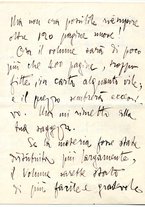 Ma non era possibile riempire
oltre 120 pagine nuove!
Ora il volume sarà di poco
più che 200 pagine, troppo
fitte, in carta alquanto vile,
e il prezzo sembrerà eccessi-
vo. Ma mi rimetto alla
tua saggezza.
Se la materia fosse stata
distribuita più largamente,
il volume sarebbe stato
di più facile e gradevole